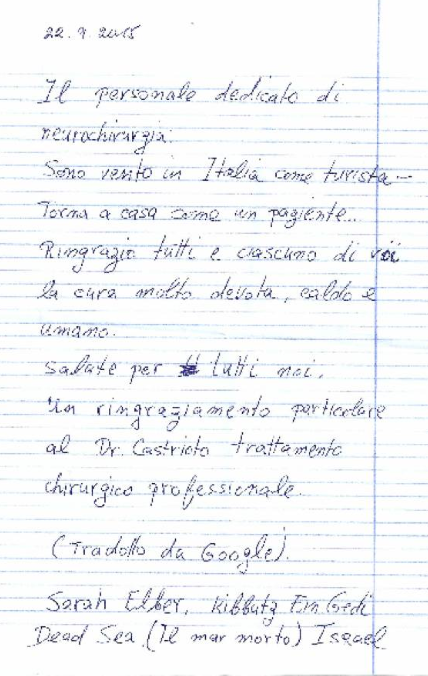 22.9.2015
Il personale dedicato di
neurochirurgia.
Sono venito in Italia come turista-
Torna a casa come un paziente...
Ringrazio tutti e ciascuno di voi
la cura molto devota, caldo e
umano.
Salute per tutti noi.
Un ringraziamento particolare
al Dr. Castrioto trattamento
chirurgico professionale.
(Tradotto da Google).
Sarah Elber, Kibbutz Ein Gedi
Dead Sea (Il mar morto) Israel